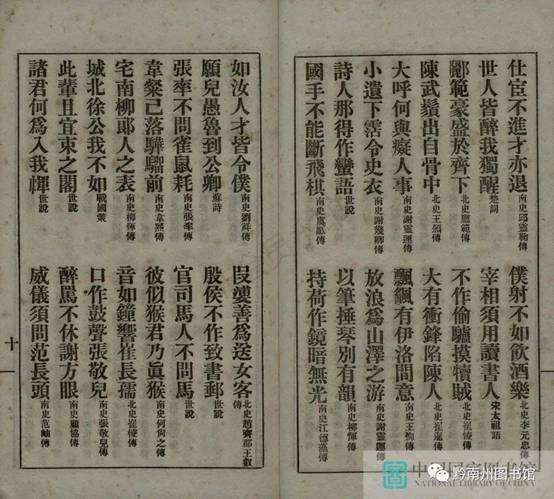 仕宦不進才亦退 南史邱靈鞠傳
僕射不如飲酒樂 北史李元忠傳
世人皆醉我獨醒 楚詞
宰相須用讀書人 宋太祖語
酈範豪盛於齊下 北史酈範傳
不作偷驢摸犢賊 北史崔㥄傳
陳武鬚出自骨中 北史王頒傳
大有衝鋒陷陳人 北史崔暹傳
大呼何與癡人事 南史謝靈運傳
飄飄有伊洛間意 南史王傳
小遺下霑令史衣 南史謝幾卿傳
放浪爲山澤之游 南史謝靈運傳
詩人那得作蠻語 世說
以筆捶琴別有韻 南史柳惲傳
國手不能斷飛棋 南史虞愿傳
持荷作鏡暗無光 南史江德藻傳
如汝人才皆令僕 南史劉祥傳
愛善爲送女客 北史趙齊郡王叡傳
願兒愚魯到公卿 蘇詩
殷侯不作致書郵 世說
張率不問雀鼠耗 南史張率傳
官司馬人不問馬 世說
韋粲已落驊騮前 南史韋粲傳
彼似猴君乃眞猴 南史何尚之傳
宅南柳郎人之表 南史柳惲傳
音如鐘響崔長孺 北史崔㥄傳
城北徐公我不如 戰國策
口作鼓聲張敬兒 南史張敬兒傳
此輩且宜束之閣 世說
醉罵不休謝方眼 南史顧協傳
諸君何爲入我褌 世說
威儀須問范長頭 南史范岫傳
十
黔南州图书馆